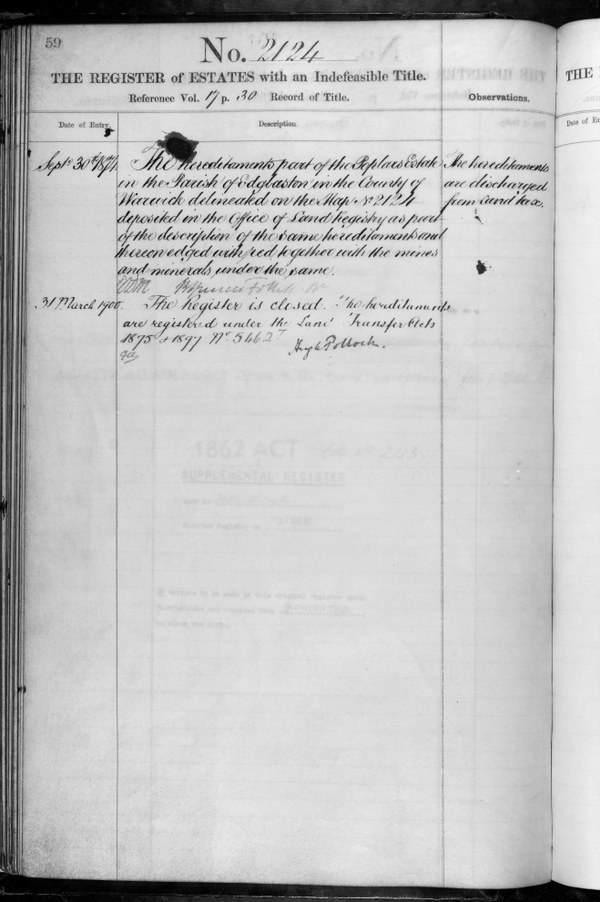 59
No. 2124
THE REGISTER of ESTATES with an Indefeasible Title.
Reference Vol. 17 p. 30 Record of Title.
Observations.
Date of Entry.
Description.
Sept. 30th
The hereditaments part of the Poplars Estate
in the Parish of Edgbaston in the County of
Warwick delineated on the Map No 2124
deposited in the Office of Land Registry as part
of the description of the same hereditaments and
thereon edged with red together with the mines
and minerals under the same.
The hereditaments
are discharged
from Land tax.
31 March 1900.
The Register is closed. The hereditaments
are registered under the Land Transfer Acts
1875 & 1897 No. 54627
Hugh Pollock.
1862 ACT
SUPPLEMENTAL REGISTER
THE
Date of En